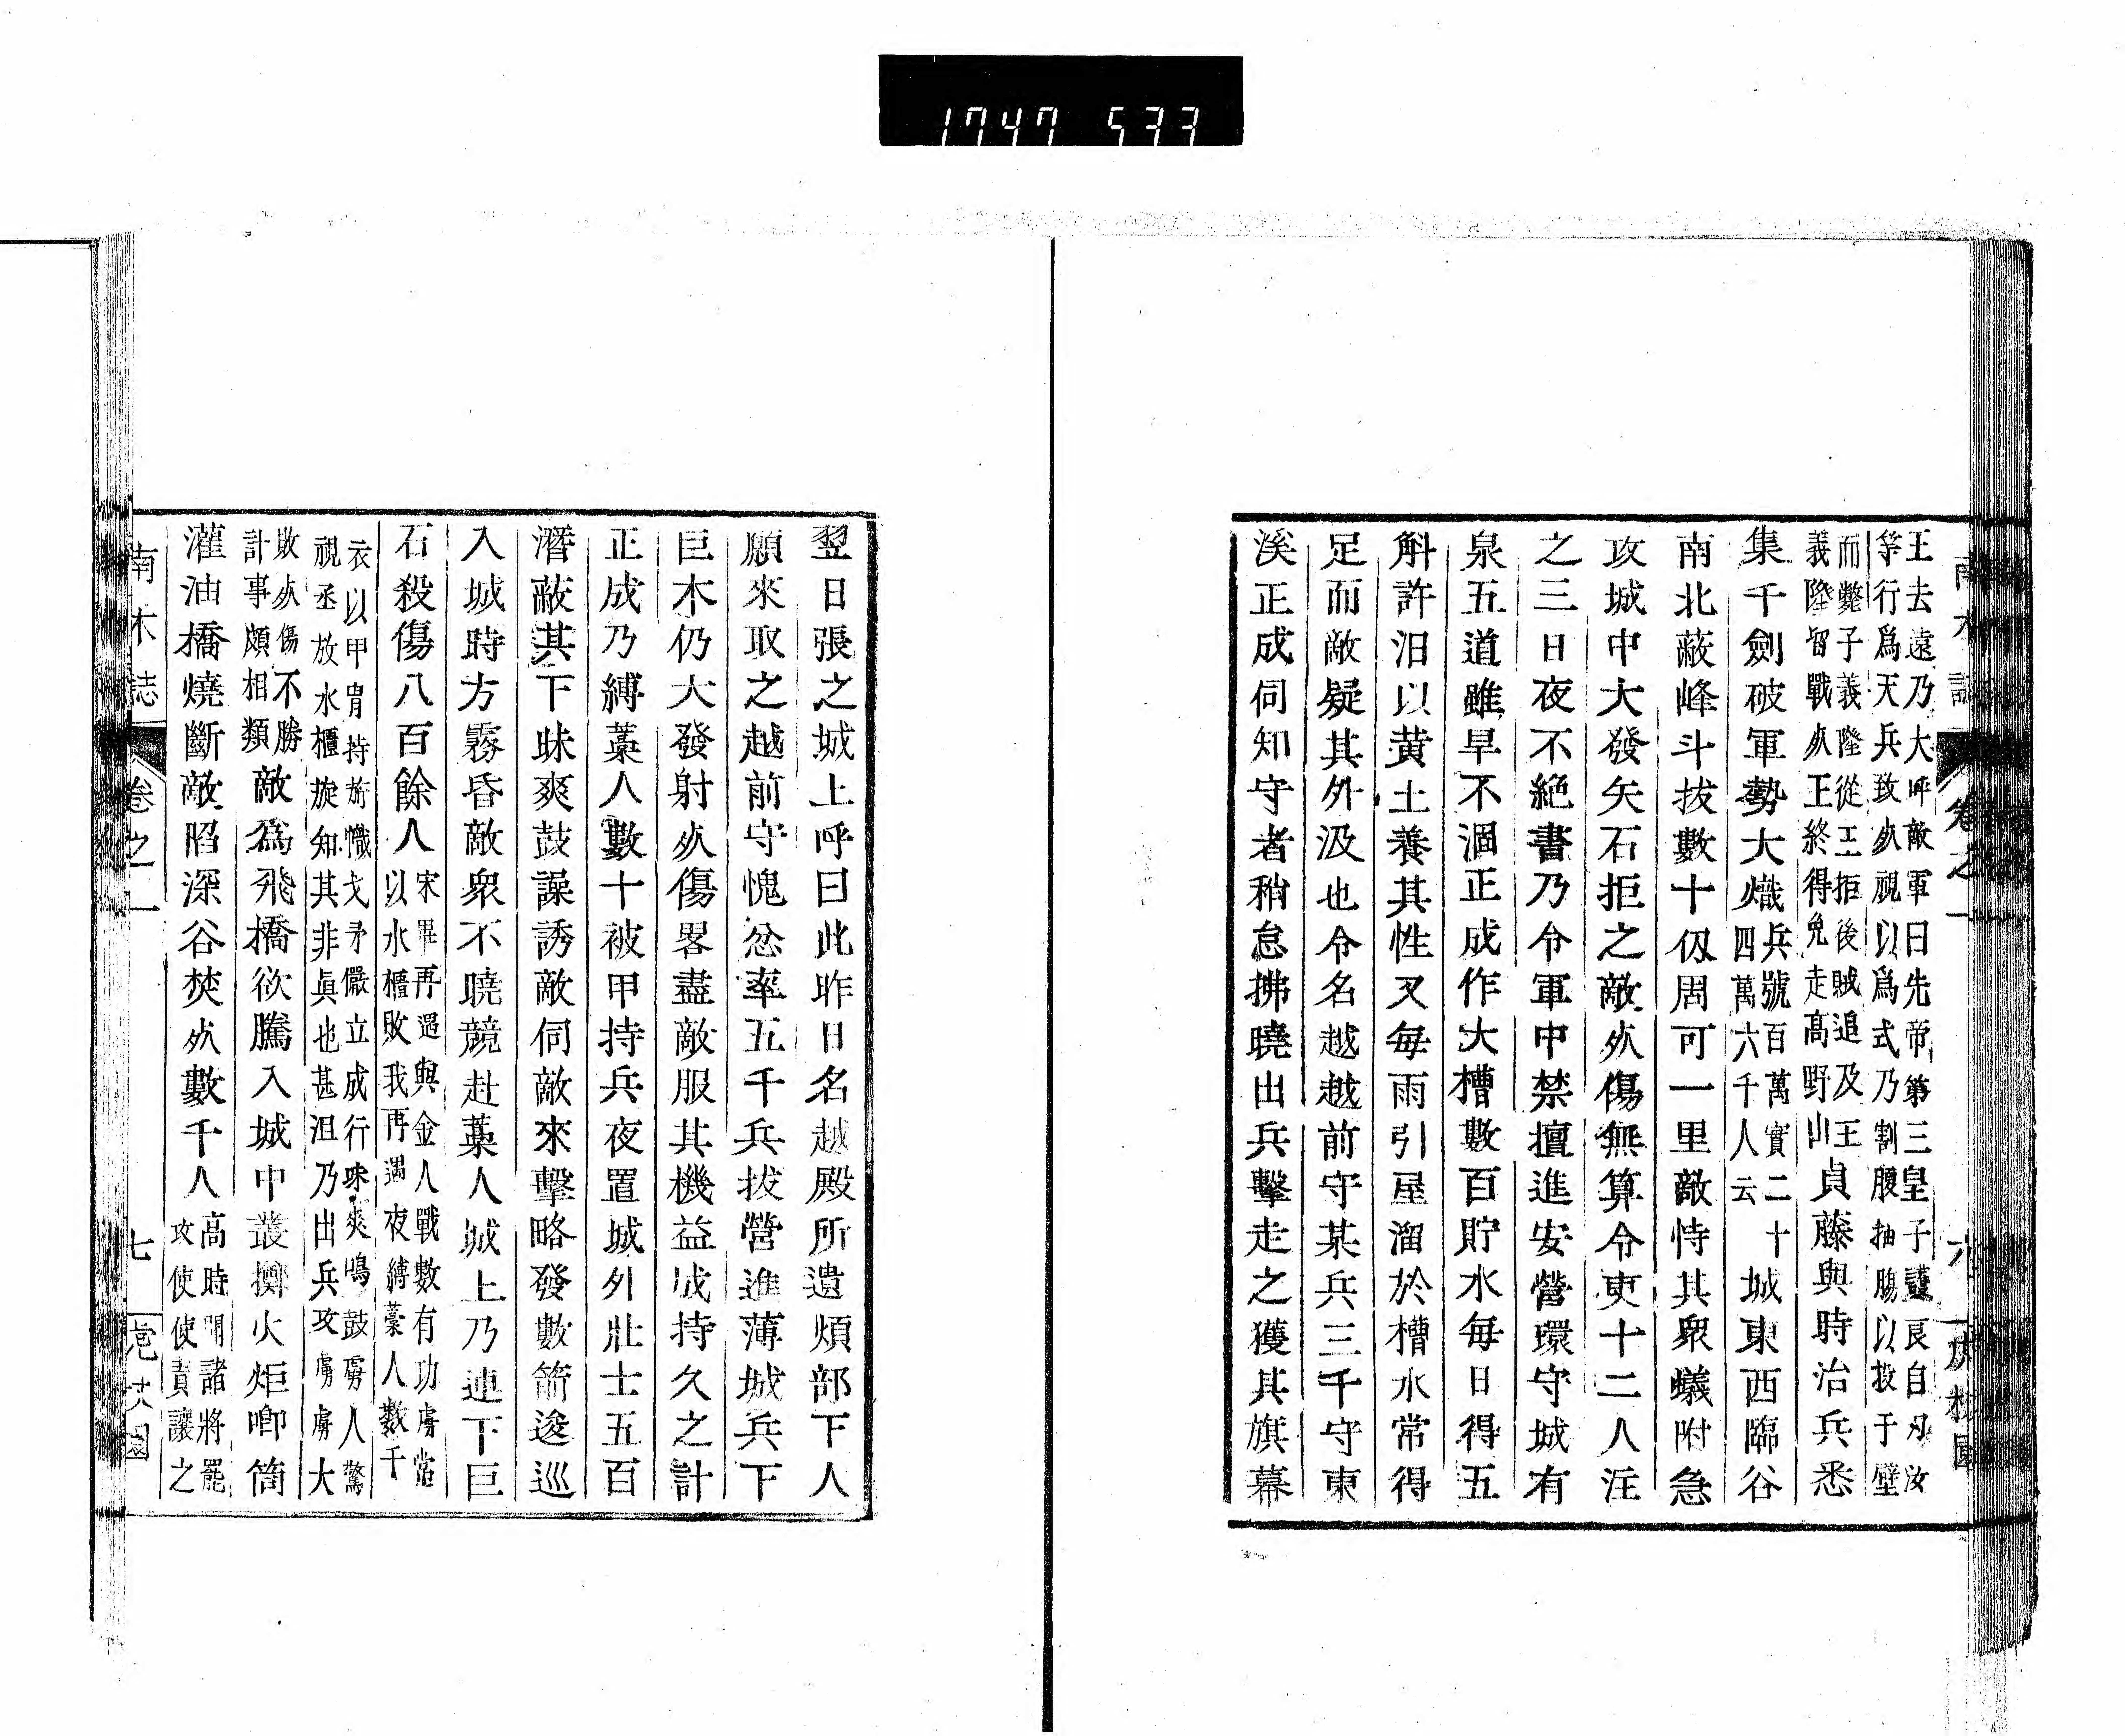 1747 533
王去遠乃大呼敵軍曰先帝第三皇子護良自刃汝
等行爲天兵致死視以爲式乃割腹抽腸以投于壁
而斃子義隆從王拒後賊追及王
義隆智戰死王終得免走高野山
貞藤與時治兵悉
集千劍破軍勢大熾
兵號百萬實二十
四萬六千人云
城東西臨谷
南北蔽峰斗拔數十仭周可一里敵恃其衆蟻附急
攻城中大發矢石拒之敵死傷無算令吏十二人注
之三日夜不絕書乃令軍中禁擅進安營環守城有
泉五道雖旱不涸正成作大槽數百貯水每日得五
斛許汨以黄土養其性又每雨引屋溜於槽水常得
足而敵疑其外汲也令名越越前守某兵三千守東
溪正成伺知守者稍怠拂曉出兵擊走之獲其旗幕
翌日張之城上呼曰此昨日名越殿所遺煩部下人
願來取之越前守愧忿率五千兵拔營進薄城兵下
巨木仍大發射死傷畧盡敵服其機益成持久之計
正成乃縛藁人數十被甲持兵夜置城外壯士五百
潛蔽其下昧爽鼓譟誘敵伺敵來擊略發數箭逡巡
入城時方霧昏敵衆不曉競赴藁人城上乃連下巨
石殺傷八百餘人
宋畢再遇與金人戰數有功虜常
以水櫃敗我再遇夜縛藁人數千
衣以甲胄持旂幟戈矛儼立成行昧爽鳴鼓虜人驚
視丞放水櫃旋知其非眞也甚沮乃出兵攻虜虜大
敗死傷不勝
計事頗相類
敵爲飛橋欲騰入城中叢擲火炬喞筒
灌油橋燒斷敵陷深谷焚死數千人
高時聞諸將罷
攻使使責讓之
南木誌
卷之一
七